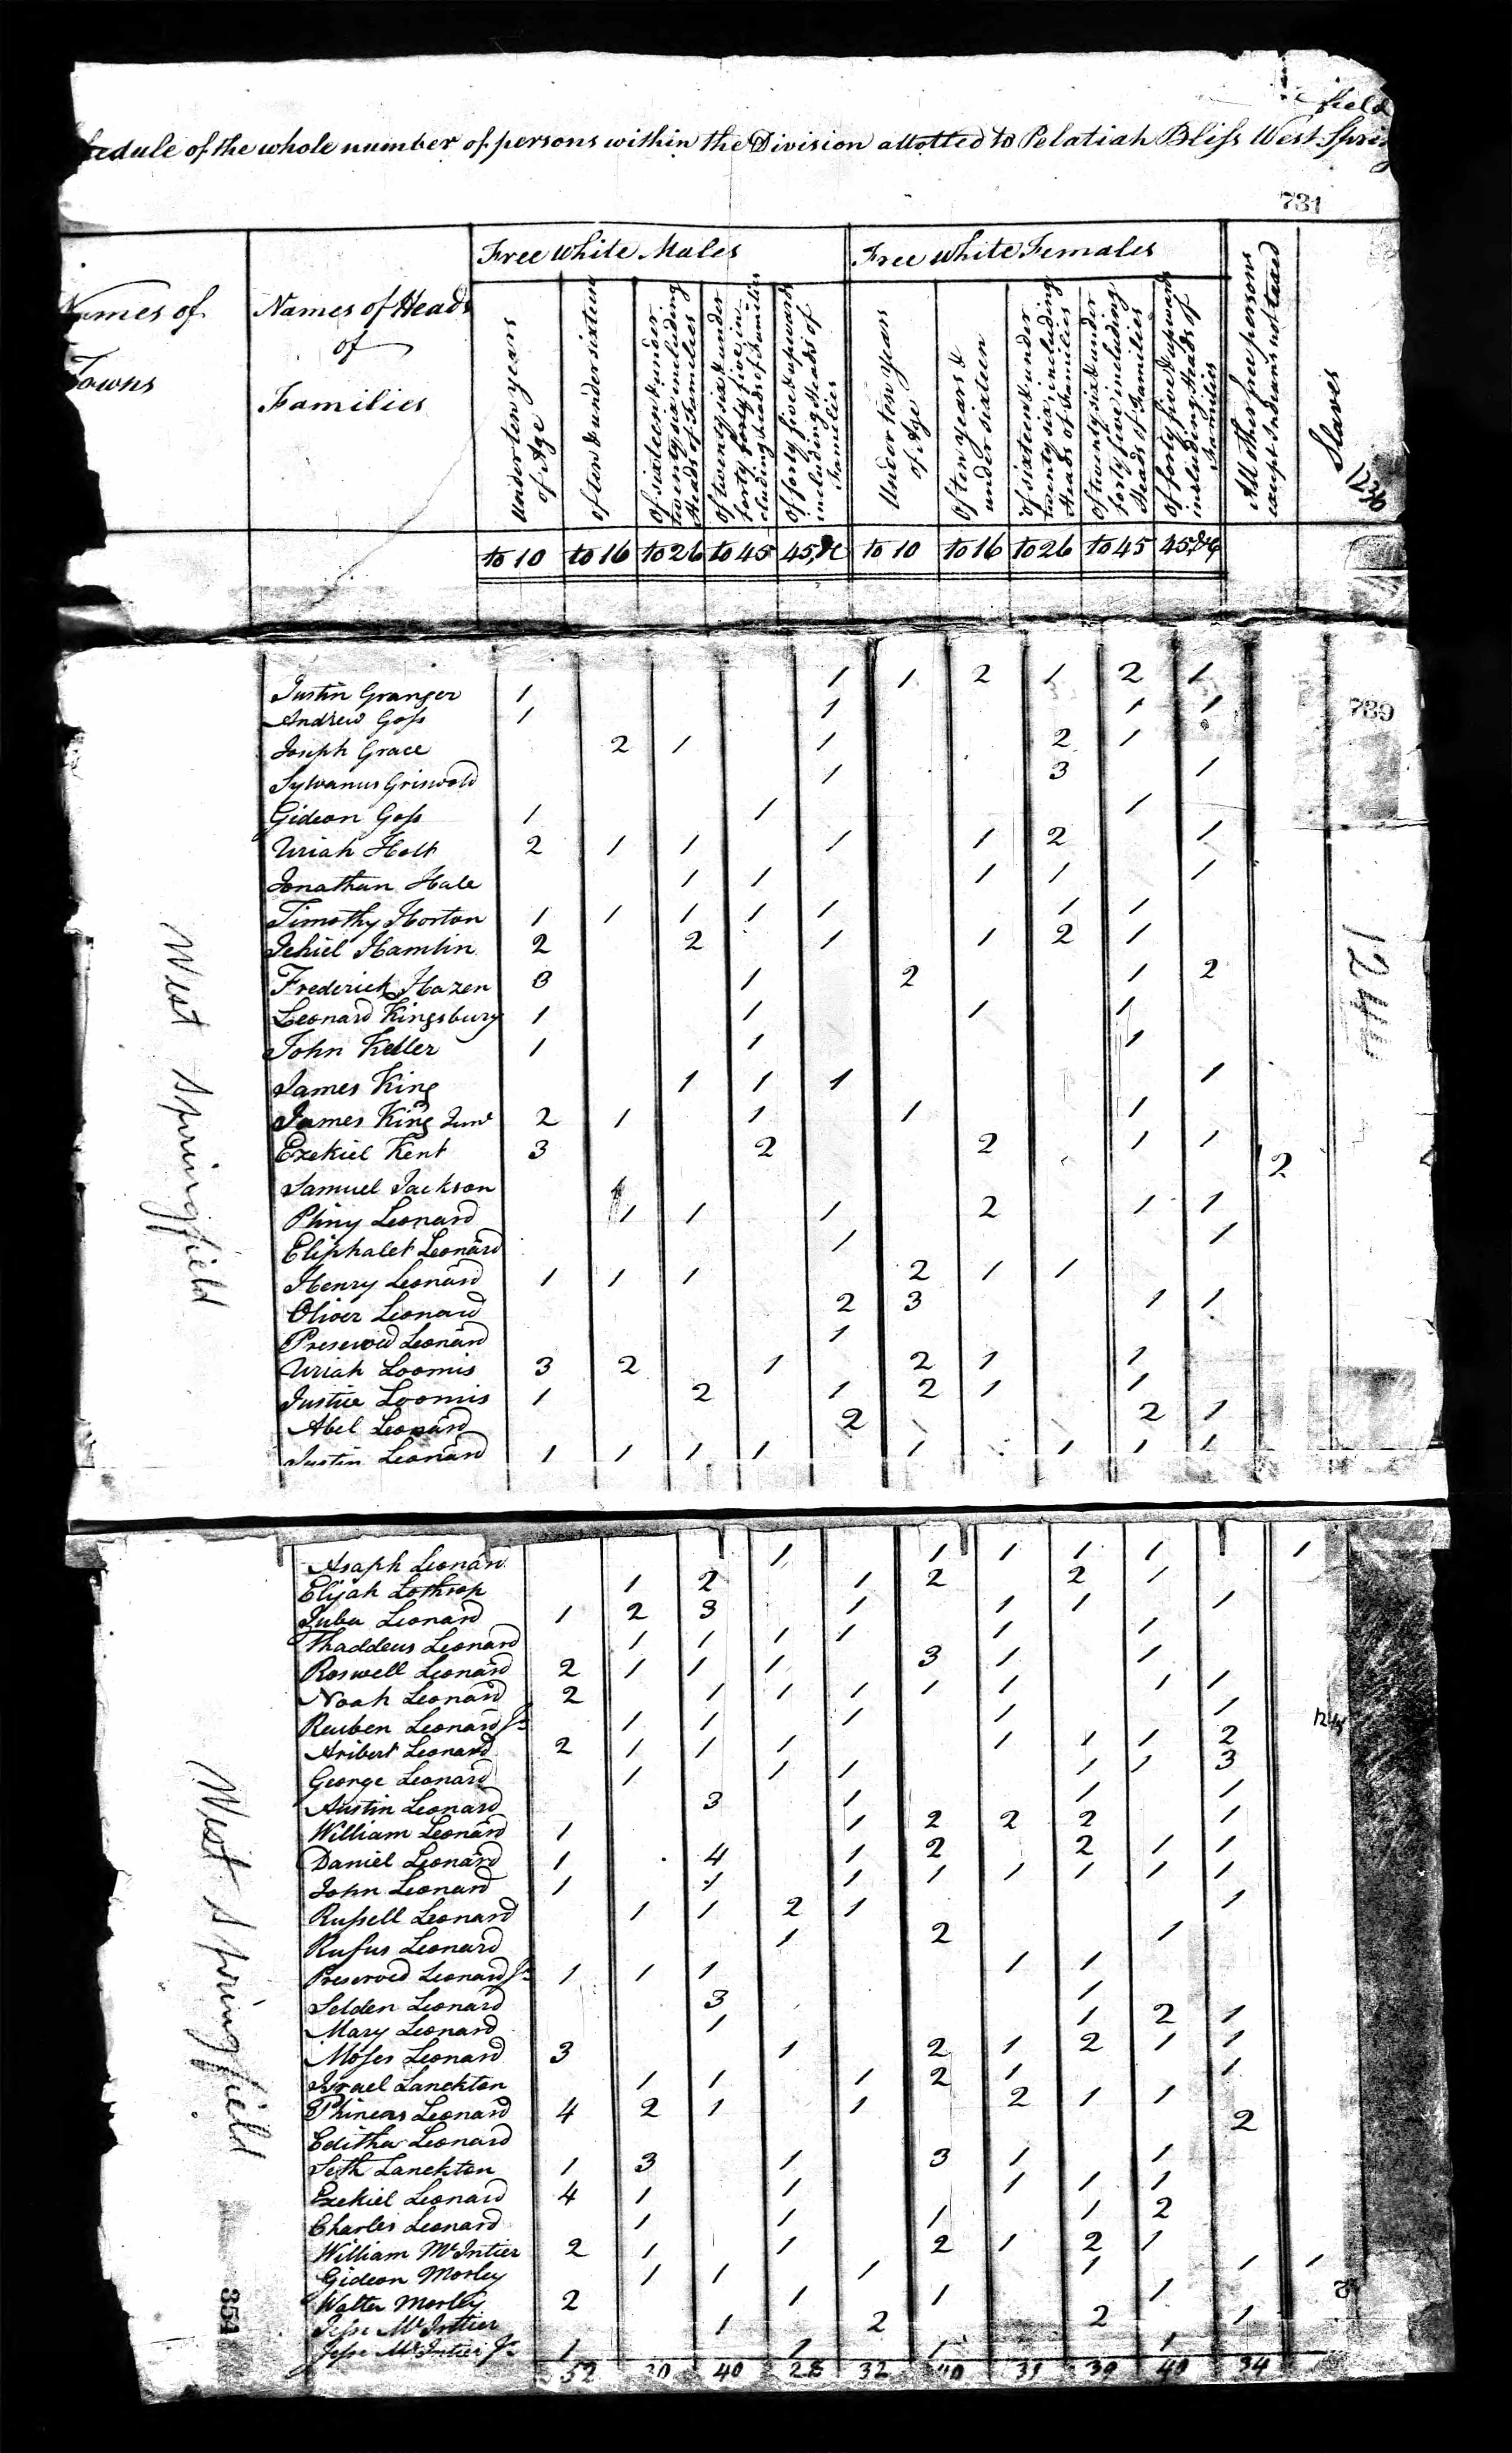 field
edule of the whole number of persons within the Division allotted to Pelatiah Bliss West Spring
731
Names of Towns
Names of Heads of Families
Free White Males
Free White Females
Under ten years of Age
of ten & under sixteen
Of sixteen & under twenty six including Heads of Families
Of twenty six & under forty five including heads of Families
Of forty five & upwards including Heads of Families
Under ten years of Age
Of ten years & under sixteen
Of sixteen & under twenty six, including Heads of Families
Of twenty six & under forty five including Heads of Families
Of forty five & upwards including Heads of Families
All other free persons except Indians not taxed
Slaves
1236
to 10 to 16 to 26 to 45 45,&c to 10 to 16 to 26 to 45 45,&c
739
1244
West Springfield
Justin Granger 1 1 1 2 1 2 1
Andrew Goss 1 1 1 1
Joseph Grace 2 1 1 2 1
Sylvanus Griswold 1 3 1
Gideon Goss 1 1 1
Uriah Holt 2 1 1 1 1 2 1
Jonathan Hale 1 1 1 1 1
Timothy Horton 1 1 1 1 1 1 1
Jehiel Hamlin 2 2 1 1 2 1
Frederick Hazen 3 1 2 1 2
Leonard Kingsbury 1 1 1 1
John Keller 1 1 1
James King 1 1 1 1
James King Junr 2 1 1 1 1
Ezekiel Kent 3 2 2 1 1
Samuel Jackson 2
Pliny Leonard 1 1 1 2 1 1
Eliphalet Leonard 1 1
Henry Leonard 1 1 1 2 1 1
Oliver Leonard 2 3 1 1
Preserved Leonard 1
Uriah Loomis 3 2 1 2 1 1
Justice Loomis 1 2 1 2 1 1
Abel Leonard 2 2 1
Justin Leonard 1 1 1 1 1 1 1 1
West Springfield
Asaph Leonar 1 1 1 1 1 1
Elijah Lothrop 1 2 1 2 2 1
Juba Leonard 1 2 3 1 1 1 1
Thaddeus Leonard 1 1 1 1 1 1
Roswell Leonard 2 1 1 1 3 1 1
Noah Leonard 2 1 1 1 1 1 1 1
Reuben Leonard Jr 1 1 1 1 1
Aribert Leonard 2 1 1 1 1 1 1 2
George Leonard 1 1 1 1 1 3
Austin Leonard 3 1 1 1
William Leonard 1 1 2 2 2 1
Daniel Leonard 1 4 1 2 2 1 1
John Leonard 1 1 1 1 1 1 1 1
Russell Leonard 1 1 2 1 1
Rufus Leonard 1 2 1
Preserved Leonard Jr 1 1 1 1 1
Selden Leonard 3 1
Mary Leonard 1 1 2 1
Moses Leonard 3 1 2 1 2 1 1
Israel Lanckton 1 1 1 2 1 1
Phineas Leonard 4 2 1 1 2 1 1
Editha Leonard 2
Seth Lanckton 1 3 1 3 1 1
Ezekiel Leonard 4 1 1 1 1 1
Charles Leonard 1 1 1 1 2
William McIntier 2 1 1 2 1 2 1
Gideon Morley 1 1 1 1 1 1
Walter Morley 2 1 1 1
Jesse McIntier 1 2 2 1
Jesse McIntier Jr 1 1 1 1
52 30 40 28 32 40 39 40 34
351